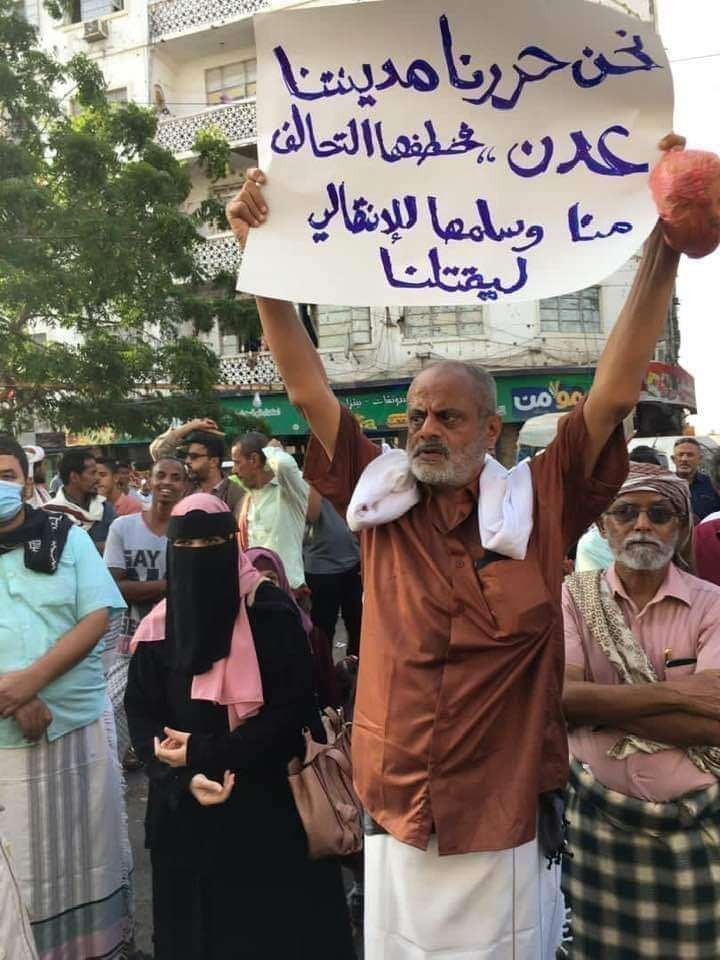 نحن حررنا مدينتنا
عدن ،، خطفها التحالف
منا وسلمها للإنتقالي
ليقتلنا
مو من
GAY